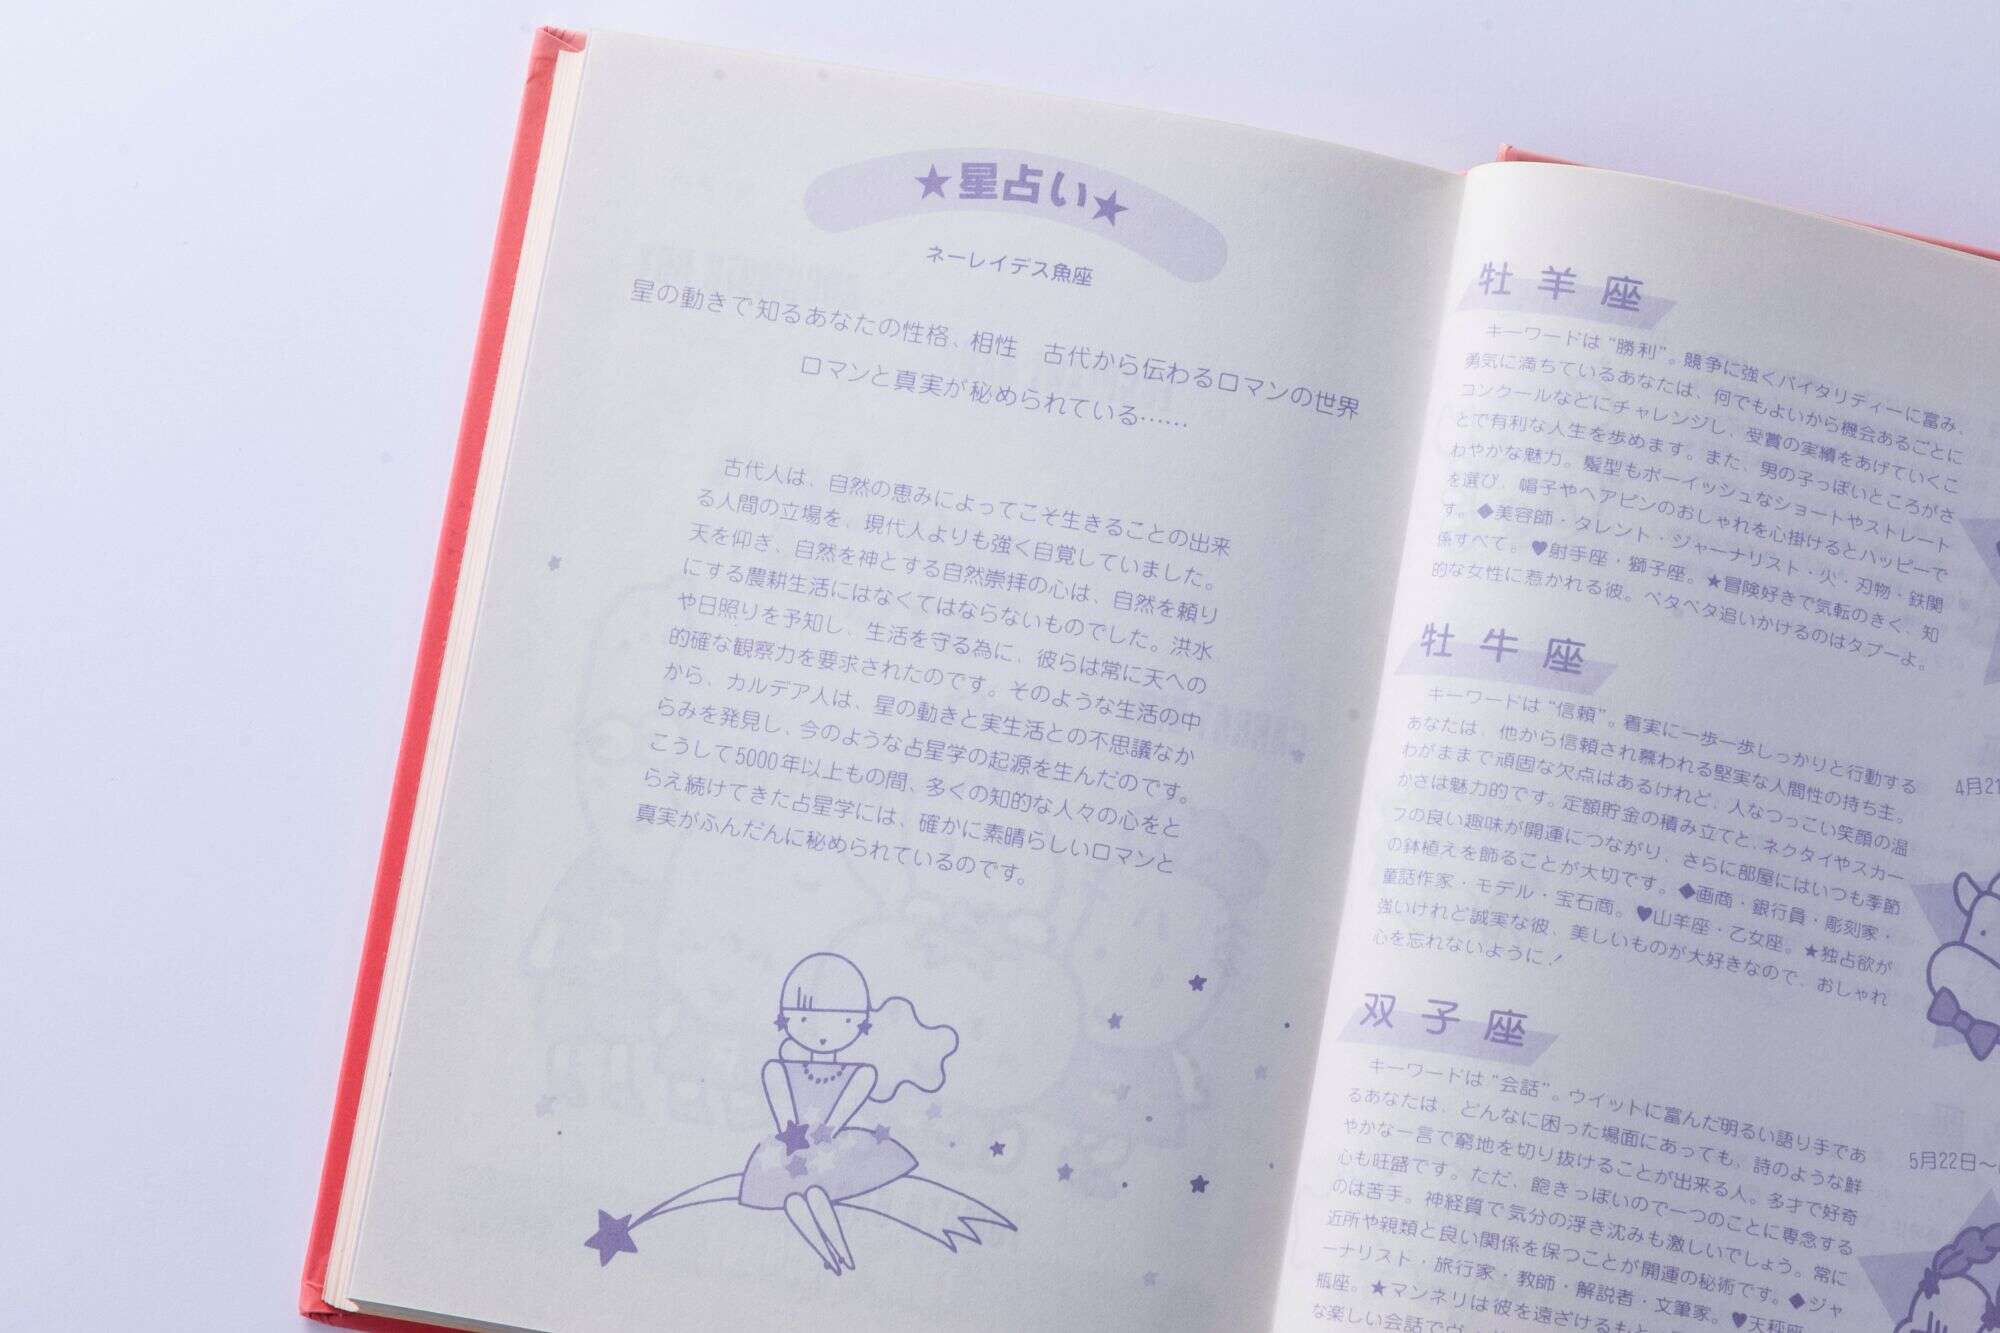 ★星占い★
ネーレイデス魚座
星の動きで知るあなたの性格、相性　古代から伝わるロマンの世界
ロマンと真実が秘められている……
古代人は、自然の恵みによってこそ生きることの出来
る人間の立場を、現代人よりも強く自覚していました。
天を仰ぎ、自然を神とする自然崇拝の心は、自然を頼り
にする農耕生活にはなくてはならないものでした。洪水
や日照りを予知し、生活を守る為に、彼らは常に天への
的確な観察力を要求されたのです。そのような生活の中
から、カルデア人は、星の動きと実生活との不思議なか
らみを発見し、今のような占星学の起源を生んだのです。
こうして5000年以上もの間、多くの知的な人々の心をと
らえ続けてきた占星学には、確かに素晴らしいロマンと
真実がふんだんに秘められているのです。
牡羊座
キーワードは“勝利”。競争に強くバイタリティーに富み、
勇気に満ちているあなたは、何でもよいから機会あるごとに
コンクールなどにチャレンジし、受賞の実績をあげていくこ
とで有利な人生を歩めます。また、男の子っぽいところがさ
わやかな魅力。髪型もボーイッシュなショートやストレート
を選び、帽子やヘアピンのおしゃれを心掛けるとハッピーで
す。◆美容師・タレント・ジャーナリスト・火・刃物・鉄関
係すべて。♥射手座・獅子座。★冒険好きで気転のきく、知
的な女性に惹かれる彼。ベタベタ追いかけるのはタブーよ。
牡牛座
キーワードは“信頼”。着実に一歩一歩しっかりと行動する
あなたは、他から信頼され慕われる堅実な人間性の持ち主。
わがままで頑固な欠点はあるけれど、人なつっこい笑顔の温
かさは魅力的です。定額貯金の積み立てと、ネクタイやスカー
フの良い趣味が開運につながり、さらに部屋にはいつも季節
の鉢植えを飾ることが大切です。◆画商・銀行員・彫刻家・
童話作家・モデル・宝石商。♥山羊座・乙女座。★独占欲が
強いけれど誠実な彼、美しいものが大好きなので、おしゃれ
心を忘れないように！
4月21
双子座
キーワードは“会話”。ウイットに富んだ明るい語り手であ
るあなたは、どんなに困った場面にあっても、詩のような鮮
やかな一言で窮地を切り抜けることが出来る人。多才で好奇
心も旺盛です。ただ、飽きっぽいので一つのことに専念する
のは苦手。神経質で気分の浮き沈みも激しいでしょう。常に
近所や親類と良い関係を保つことが開運の秘術です。◆ジャ
ーナリスト・旅行家・教師・解説者・文筆家。♥天秤座
瓶座。★マンネリは彼を遠ざけるもと
な楽しい会話で
5月22日〜